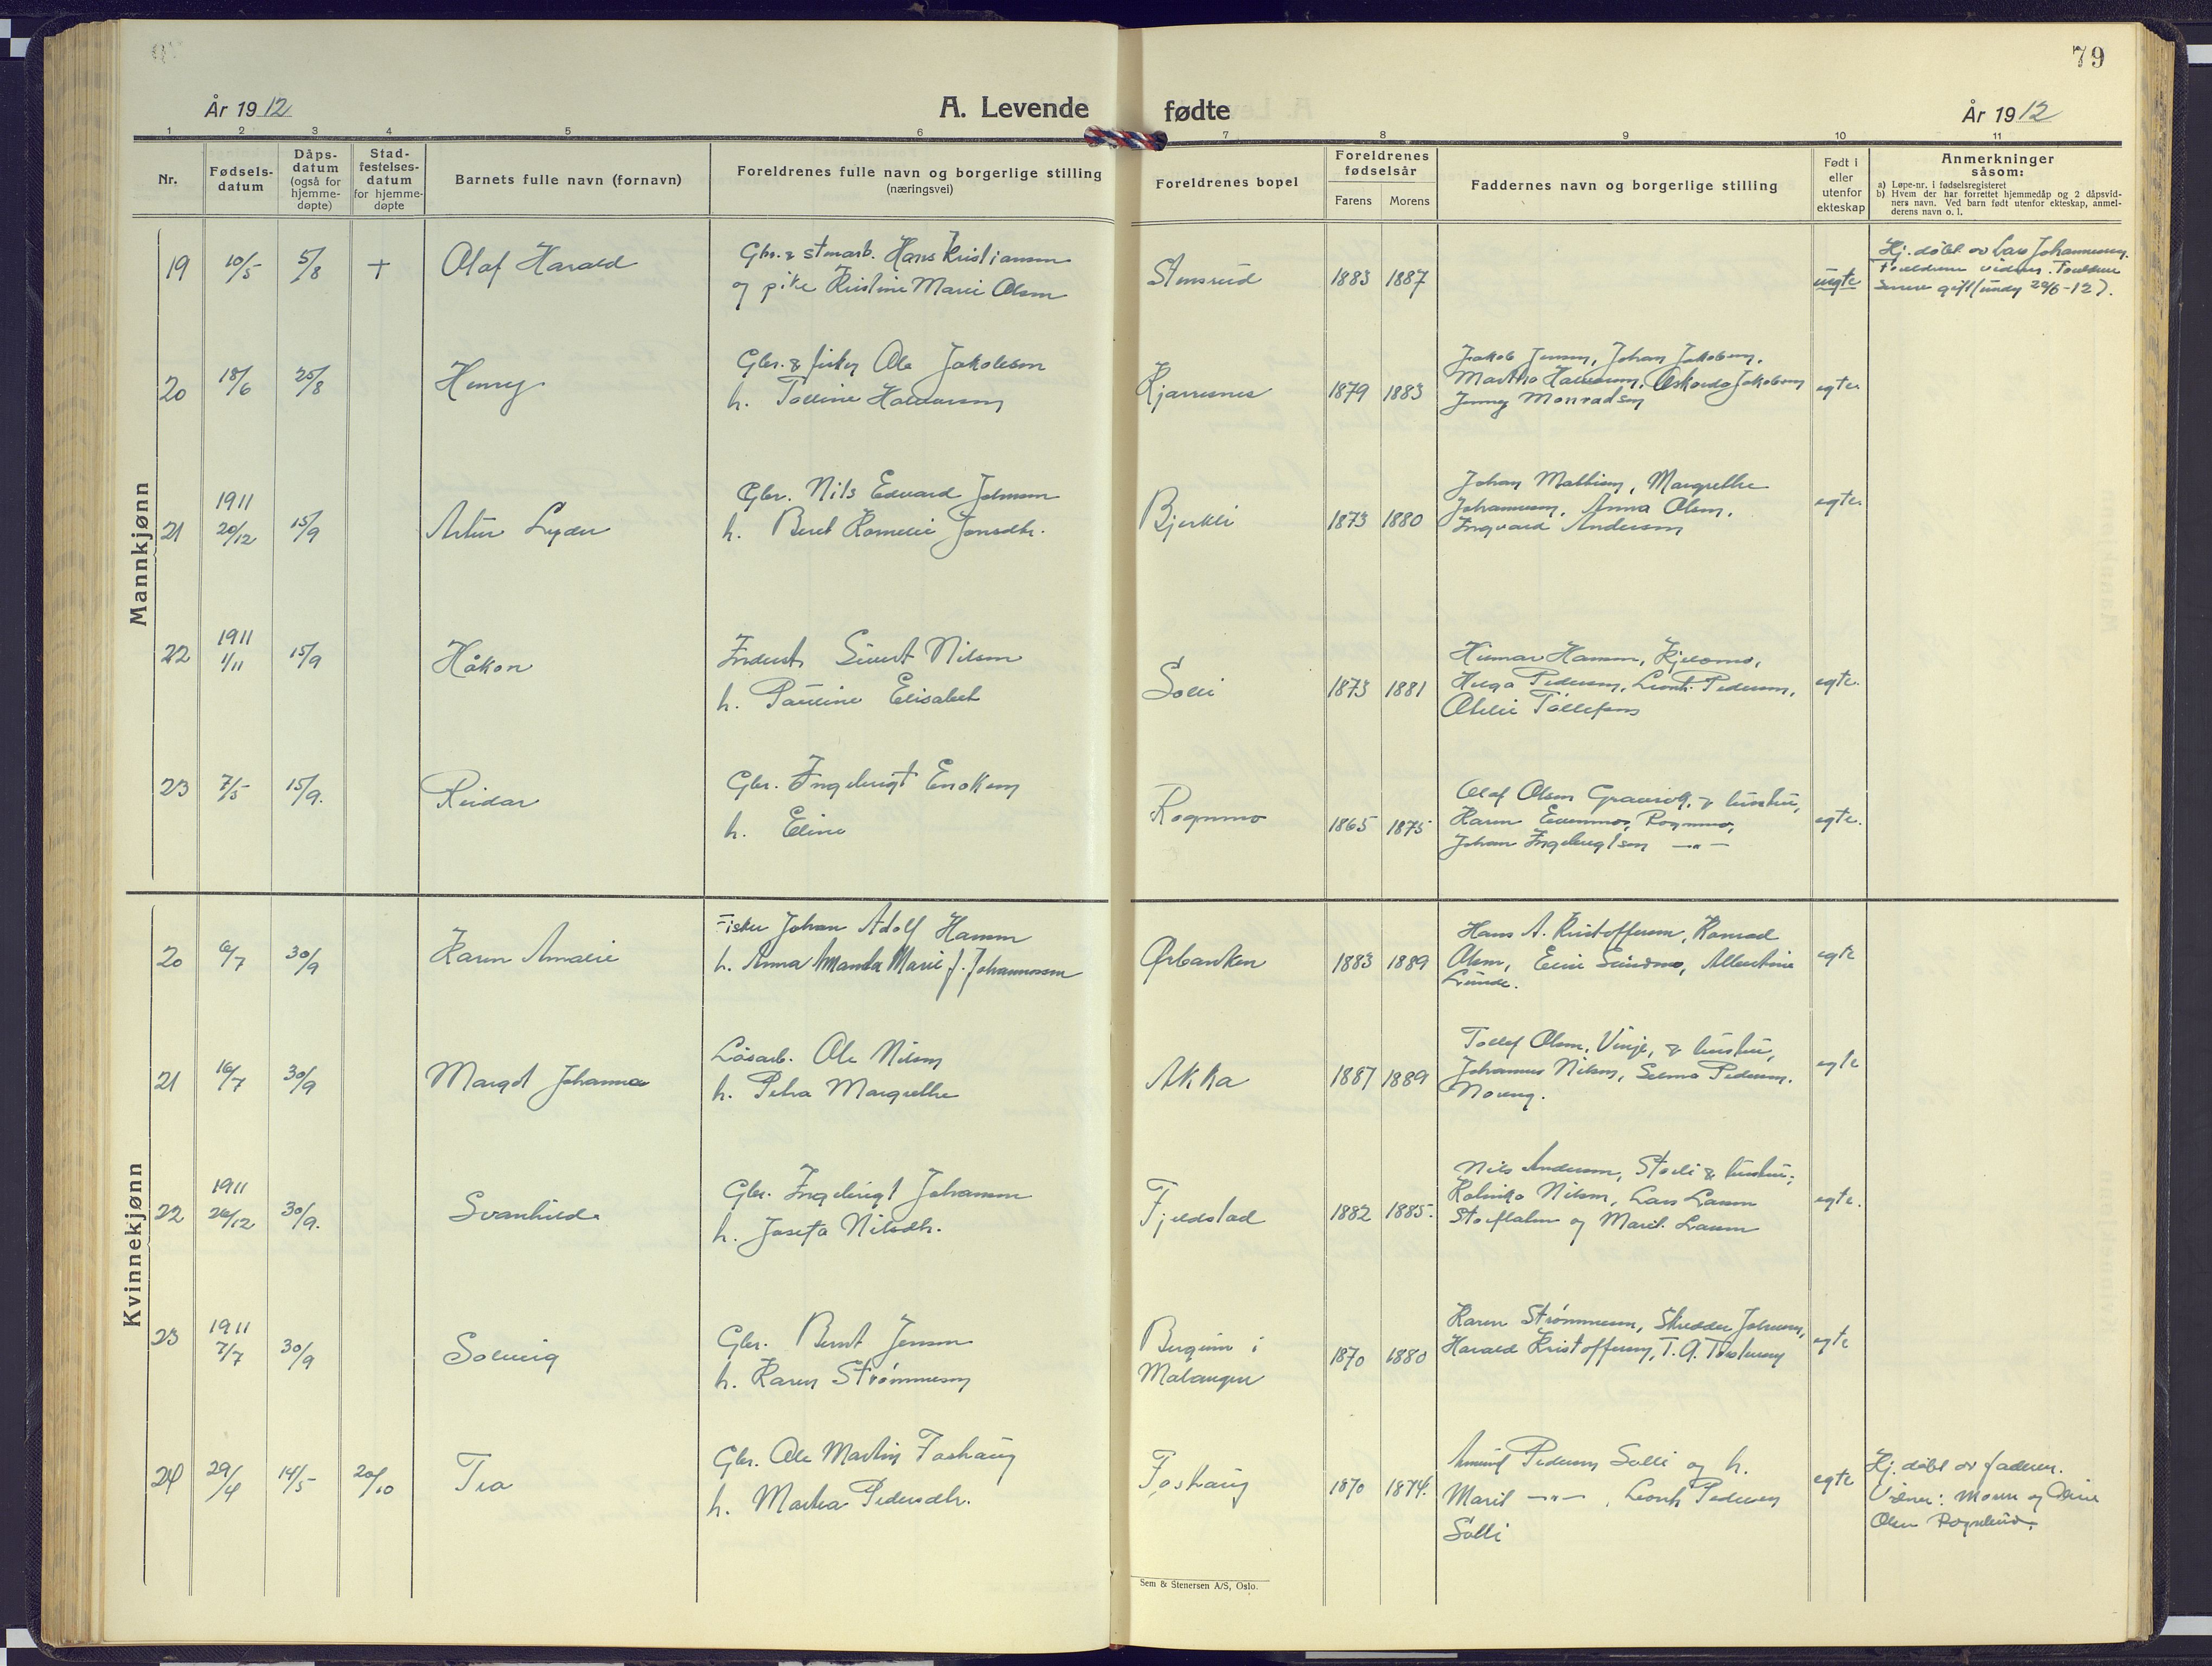 79
År 1912
A. Levende fødte
År 1912
1 2 3 4 5 6 7 8 9 10 11
Nr.
Fødsels-
datum
Dåps-
datum
(også for
hjemme-
døpte)
Stad-
festelses-
datum
for hjemme-
døpte
Barnets fulle navn (fornavn)
Foreldrenes fulle navn og borgerlige stilling
(næringsvei)
Foreldrenes bopel
Foreldrenes
fødselsår
Farens Morens
Faddernes navn og borgerlige stilling
Født i
eller
utenfor
ekteskap
Anmerkninger
såsom:
a) Løpe-nr. i fødselsregisteret
b) Hvem der har forrettet hjemmedåp og 2 dåpsvid-
ners navn. Ved barn født utenfor ekteskap, anmel-
derens navn o. l.
Mannkjønn
19 10/5 5/8 + Olaf Harald
Gbr. & stenarb. Hans Kristiansen
og pike Kristine Marie Olsen
Stensrud 1883 1887
uegte
Hj. døbt av Lars Johannesen.
Foreldrene vidner. Foreldrene
senere gift (undg 20/6-12).
20 18/6 25/8 Henry
Gbr. & fisker Ole Jakobsen
h. Tolline Halvorsen
Kjærresnes 1879 1883
Jakob Jensen, Johan Jakobsen,
Martha Halvorsen, Jakobsen
Jenny Monradsen
egte
21 1911 20/12 15/9 Artur Lyder
Gbr. Nils Edvard Johnsen
h. Beret Kornelie Jonsdtr.
Bjerkli 1873 1880
Johan Mathisen, Margrethe
Johannesen, Anna Olsen,
Ingvard Andersen
egte
22 1911 1/11 15/9 Håkon
Inderst Sivert Nilsen
h. Pauline Elisabet
Solli 1873 1881
Hilmar Hansen, Kjelomo,
Helga Pedersen, Leonh. Pedersen,
Tollefsens
egte.
23 7/5 15/9. Reidar
Gbr. Ingebrigt Enoksen
h. Eline
Rognmo 1865 1875
Olaf Olsen & hustru,
Karen Evenmo, Rognmo,
Johan Ingebrigtsen —"—
egte.
Kvinnekjønn
20 6/7 30/9 Karen Amalie
Fisker Johan Adolf Hansen
h. Anna Amanda Marie J. Johannessen
Ørbanken 1883 1889
Hans A. Kristoffersen, Konrad
Olsen, Albertine
Lunde.
egte
21 16/7 30/9 Margot Johanna
Løsarb. Ole Nilsen
h. Petra Margrethe
Akka 1887 1889
Tollef Olsen, Vinje, & hustru,
Johannes Nilsen, Selma Pedersen.
Moeng.
egte
22 1911 26/12 30/9. Svanhild
Gbr. Ingebrigt Johansen
h. Josefa Nilsdtr.
Fjeldstad 1882 1885.
Nils Andersen, & hustru;
Nilsen, Lars Larsen
og Marit Larsen
egte.
23 1911 7/7 30/9 Solveig
Gbr. Bernt Jensen
h. Karen Strømmesen
i
Malangen 1870 1880
Karen Strømmesen, Skredder Johnsen,
Harald Kristoffersen, T. A.
egte
24 29/4 14/5 20/10 Tea
Gbr. Ole Martin Foshaug
h. Martha Pedersdtr.
Foshaug 1870 1874.
Amund Pedersen Solli og h.
Marit —"—, Leonh. Pedersen
Solli
egte
Hj. døbt av faderen.
Vidner: Moren og
Olsen
Sem & Stenersen A/S, Oslo.